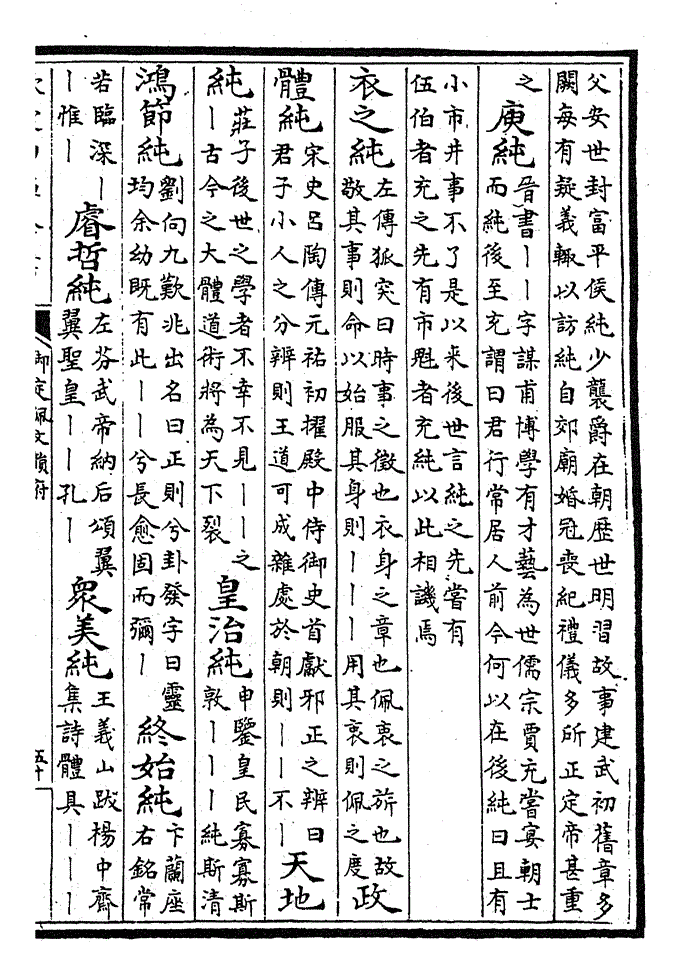 父安世封富平侯純少襲爵在朝歴世明習故事建武初舊章多
闕每有疑義輙以訪純自郊廟婚冠喪紀禮儀多所正定帝甚重
之
庾純
晉書丨丨字謀甫博學有才藝為世儒宗賈充嘗宴朝士
而純後至充謂曰君行常居人前今何以在後純曰且有
小市井事不了是以来後世言純之先嘗有
伍伯者充之先有市魁者充純以此相譏焉
衣之純
左傳狐突曰時事之徵也衣身之章也佩衷之旂也故
敬其事則命以始服其身則丨丨丨用其衷則佩之度
政
體純
宋史吕陶傳元祐初擢殿中侍御史首獻邪正之辨曰
君子小人之分辨則王道可成雜處於朝則丨丨不丨
天地
純
莊子後世之學者不幸不見丨丨之
丨古今之大體道術將為天下裂
皇治純
申鑒皇民寡寡斯
敦丨丨丨純斯清
鴻節純
劉向九歎兆出名曰正則兮卦發字曰靈
均余幼既有此丨丨兮長愈固而彌丨
終始純
卞蘭座
右銘常
若臨深丨
丨惟丨
睿哲純
左芬武帝納后頌翼
翼聖皇丨丨孔丨
衆美純
王義山跋楊中齋
集詩體具丨丨丨
御定佩文韻府
五十